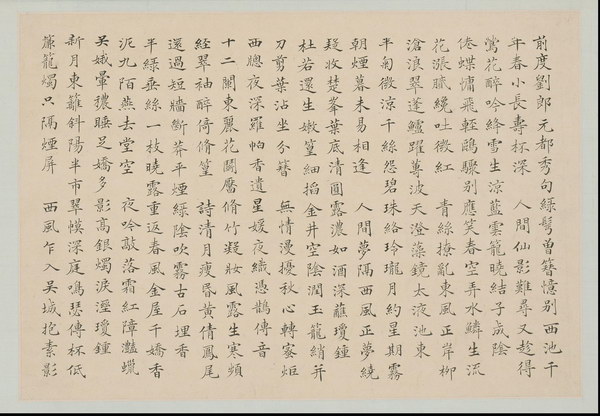 前度劉郎元都秀句綠鬢曾簪憶別西池千
年春小長壽杯深 人間仙影難尋又趁得
鶯花醉吟絳雪生涼藍雲籠曉結子成陰
倦蝶慵飛輕鷗驟別應笑春空弄水鱗生流
花漲膩纔吐微紅 青絲撩亂東風正岸柳
滄浪翠蓬鱸躍蓴波天澄藻鏡太液池東
半菊微涼千絲怨碧珠絡玲瓏月約星期霧
朝煙暮未易相逢 人間夢隔西風正夢繞
疑收楚峯葉底清圓露濃如酒深蘸瓊鍾
杜若還生嫩篁細掐金井空陰潤玉籠綃并
刀剪葉沾坐分簪 無情漫擾秋心轉寂炬
西牕夜深羅帕香遺星媛夜織憑鵲傳音
十二闌東麗花鬭靨脩竹凝妝風露生寒頻
經翠袖醉倚脩篁 詩清月瘦昏黃倩鳳尾
還過短牆斷莽平煙綠陰吹霧古石埋香
半綠垂絲一枝曉露重返春風金屋千嬌香
泥九陌燕去堂空 夜吟敲落霜紅障灔蠟
吳娥暈濃睡足嬌多影高銀燭淚溼瓊鍾
新月東籬斜陽半市翠幙深庭鳴瑟傳杯低
簾籠燭只隔煙屏 西風乍入吳城抱素影